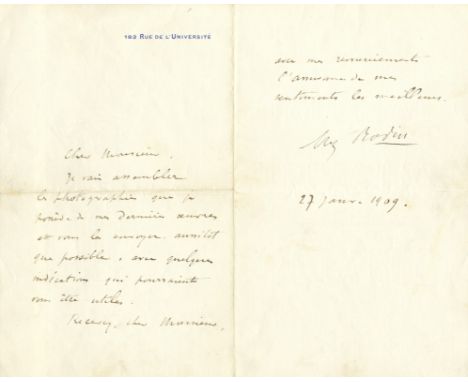 182 RUE DE L'UNIVERSITÉ
Cher Monsieur,
Je vais assembler
les photographies que je
possède de mes dernières œuvres
et vous les envoyer aussitôt
que possible, avec quelques
indications qui pourraient
vous être utiles.
Recevez, cher Monsieur,
avec mes remerciements
l'assurance de mes
sentiments les meilleurs.
Aug Rodin
27 janv. 1909.